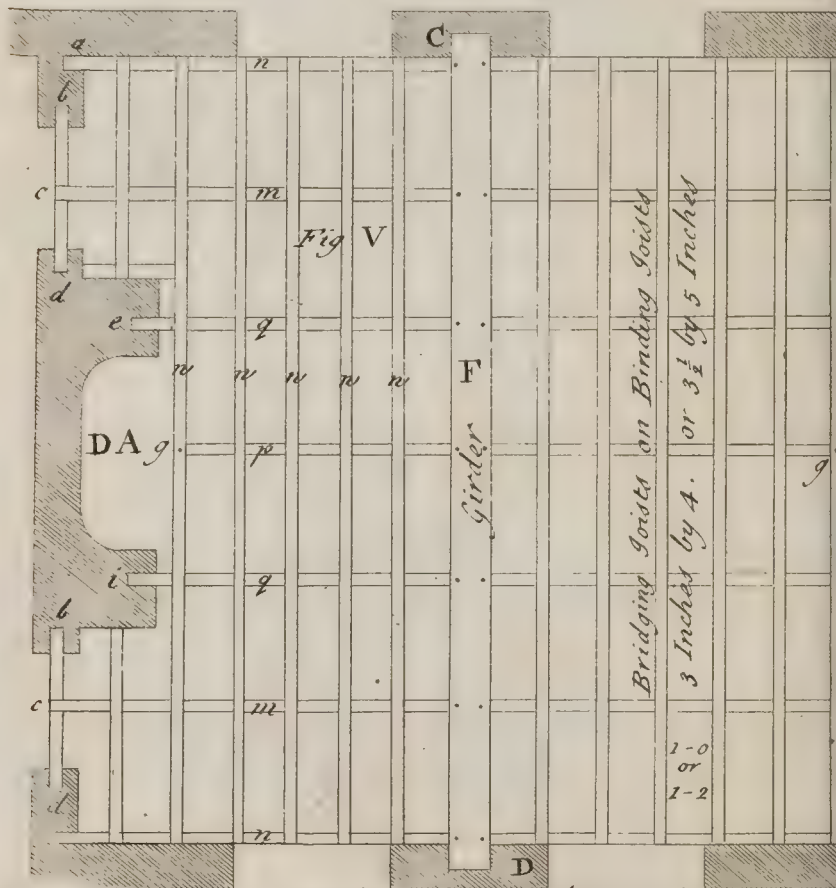 C
a
n
b
c
m
Fig V
d
e
q
n n n n n
F
DA g
p
g
Girder
Bridging Joists on Binding Joists
3 Inches by 4. or 3 1/2 by 5 Inches
i
q
b
c
m
1-0
or
1-2
d
n
D